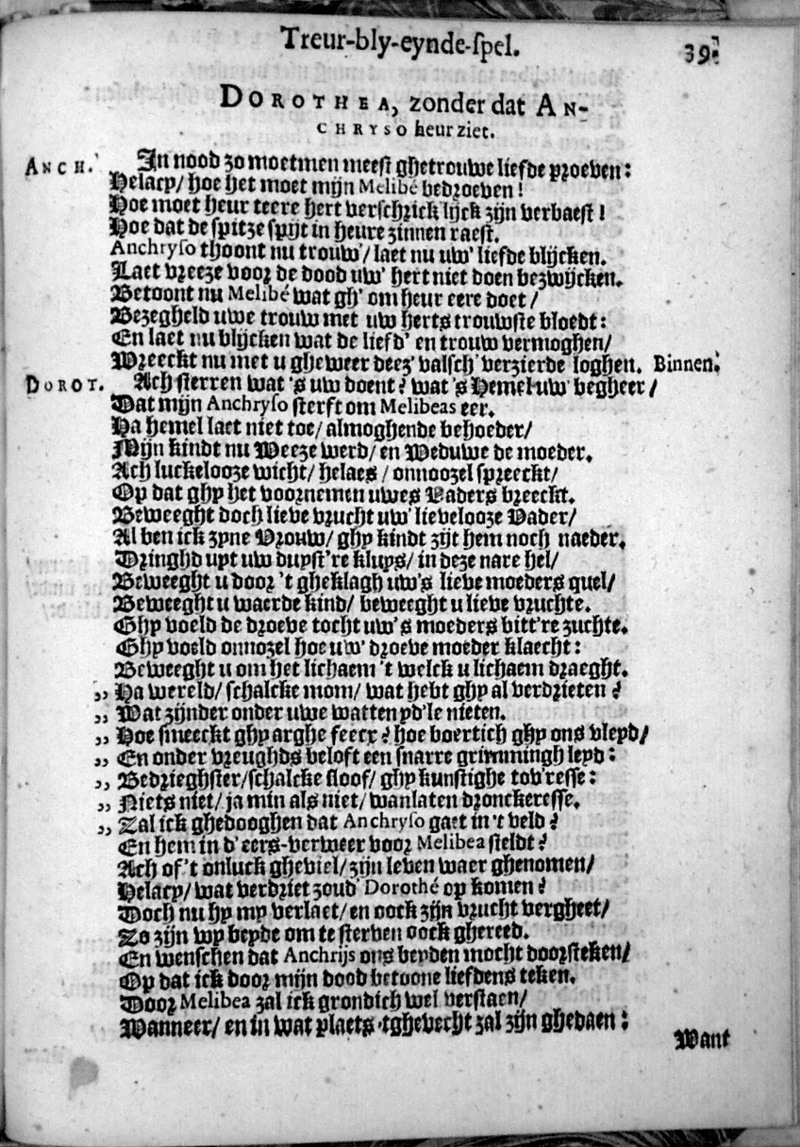 Treur-bly-eynde-spel. 39.
DOROTHEA, zonder dat AN-
CHRYSO heur ziet.
ANCH. In nood zo moetmen meest ghetrouwe liefde proeven:
Helacy/ hoe het moet mijn Melibé bedroeven!
Hoe moet heur teere hert verschricklijck zijn verbaest!
Hoe dat de spitze spijt in heure zinnen raest.
Anchryso thoont nu trouw'/ laet nu uw' liefde blijcken.
Laet vreeze voor de dood uw' hert niet doen bezwijcken.
Betoont nu Melibé wat gh' om heur eere doet/
Bezegheld uwe trouw met uw herts trouwste bloedt:
En laet nu blijcken wat de liefd' en trouw vermoghen/
Wreeckt nu met u gheweer deez' valsch' verzierde loghen. Binnen.
DOROT. Ach sterren wat 's uw doent? wat 's Hemel uw' begheer/
Dat mijn Anchryso sterft om Melibeas eer.
Ha hemel laet niet toe/ almoghende behoeder/
Mijn kindt nu Weeze werd/ en Weduwe de moeder.
Ach luckelooze wicht/ helaes/ onnoozel spreeckt/
Op dat ghy het voornemen uwes Vaders breeckt.
Beweeght doch lieve vrucht uw' lievelooze Vader/
Al ben ick zyne Vrouw/ ghy kindt zijt hem noch naeder.
Dringhd uyt uw duyst're kluys/ in deze nare hel/
Beweeght u door 't gheklagh uw's lieve moeders quel/
Beweeght u waerde kind/ beweeght u lieve vruchte.
Ghy voeld de droeve tocht uw's moeders bitt're zuchte.
Ghy voeld onnozel hoe uw' droeve moeder klaecht:
Beweeght u om het lichaem 't welck u lichaem draeght.
,, Ha wereld/ schalcke mom/ wat hebt ghy al verdrieten?
,, Wat zijnder onder uwe watten yd'le nieten.
,, Hoe smeeckt ghy arghe feecx? hoe boertich ghy ons vleyd/
,, En onder vreughds beloft een snarre grimmingh leyd:
,, Bedrieghster/ schalcke sloof/ ghy kunstighe tov'resse:
,, Niets niet/ ja min als niet/ wanlaten dronckeresse.
,, Zal ick ghedooghen dat Anchryso gaet in 't veld?
En hem in d' eers-verweer voor Melibea steldt?
Ach of 't onluck gheviel/ zijn leven waer ghenomen/
Helacy/ wat verdriet zoud' Dorothé op komen?
Doch nu hy my verlaet/ en oock zijn vrucht vergheet/
Zo zijn wy beyde om te sterven oock ghereed.
En wenschen dat Anchrijs ons beyden mocht doorsteken/
Op dat ick door mijn dood betoone liefdens teken.
Door Melibea zal ick grondich wel verstaen/
Wanneer/ en in wat plaets 'tghevecht zal zijn ghedaen:
Want